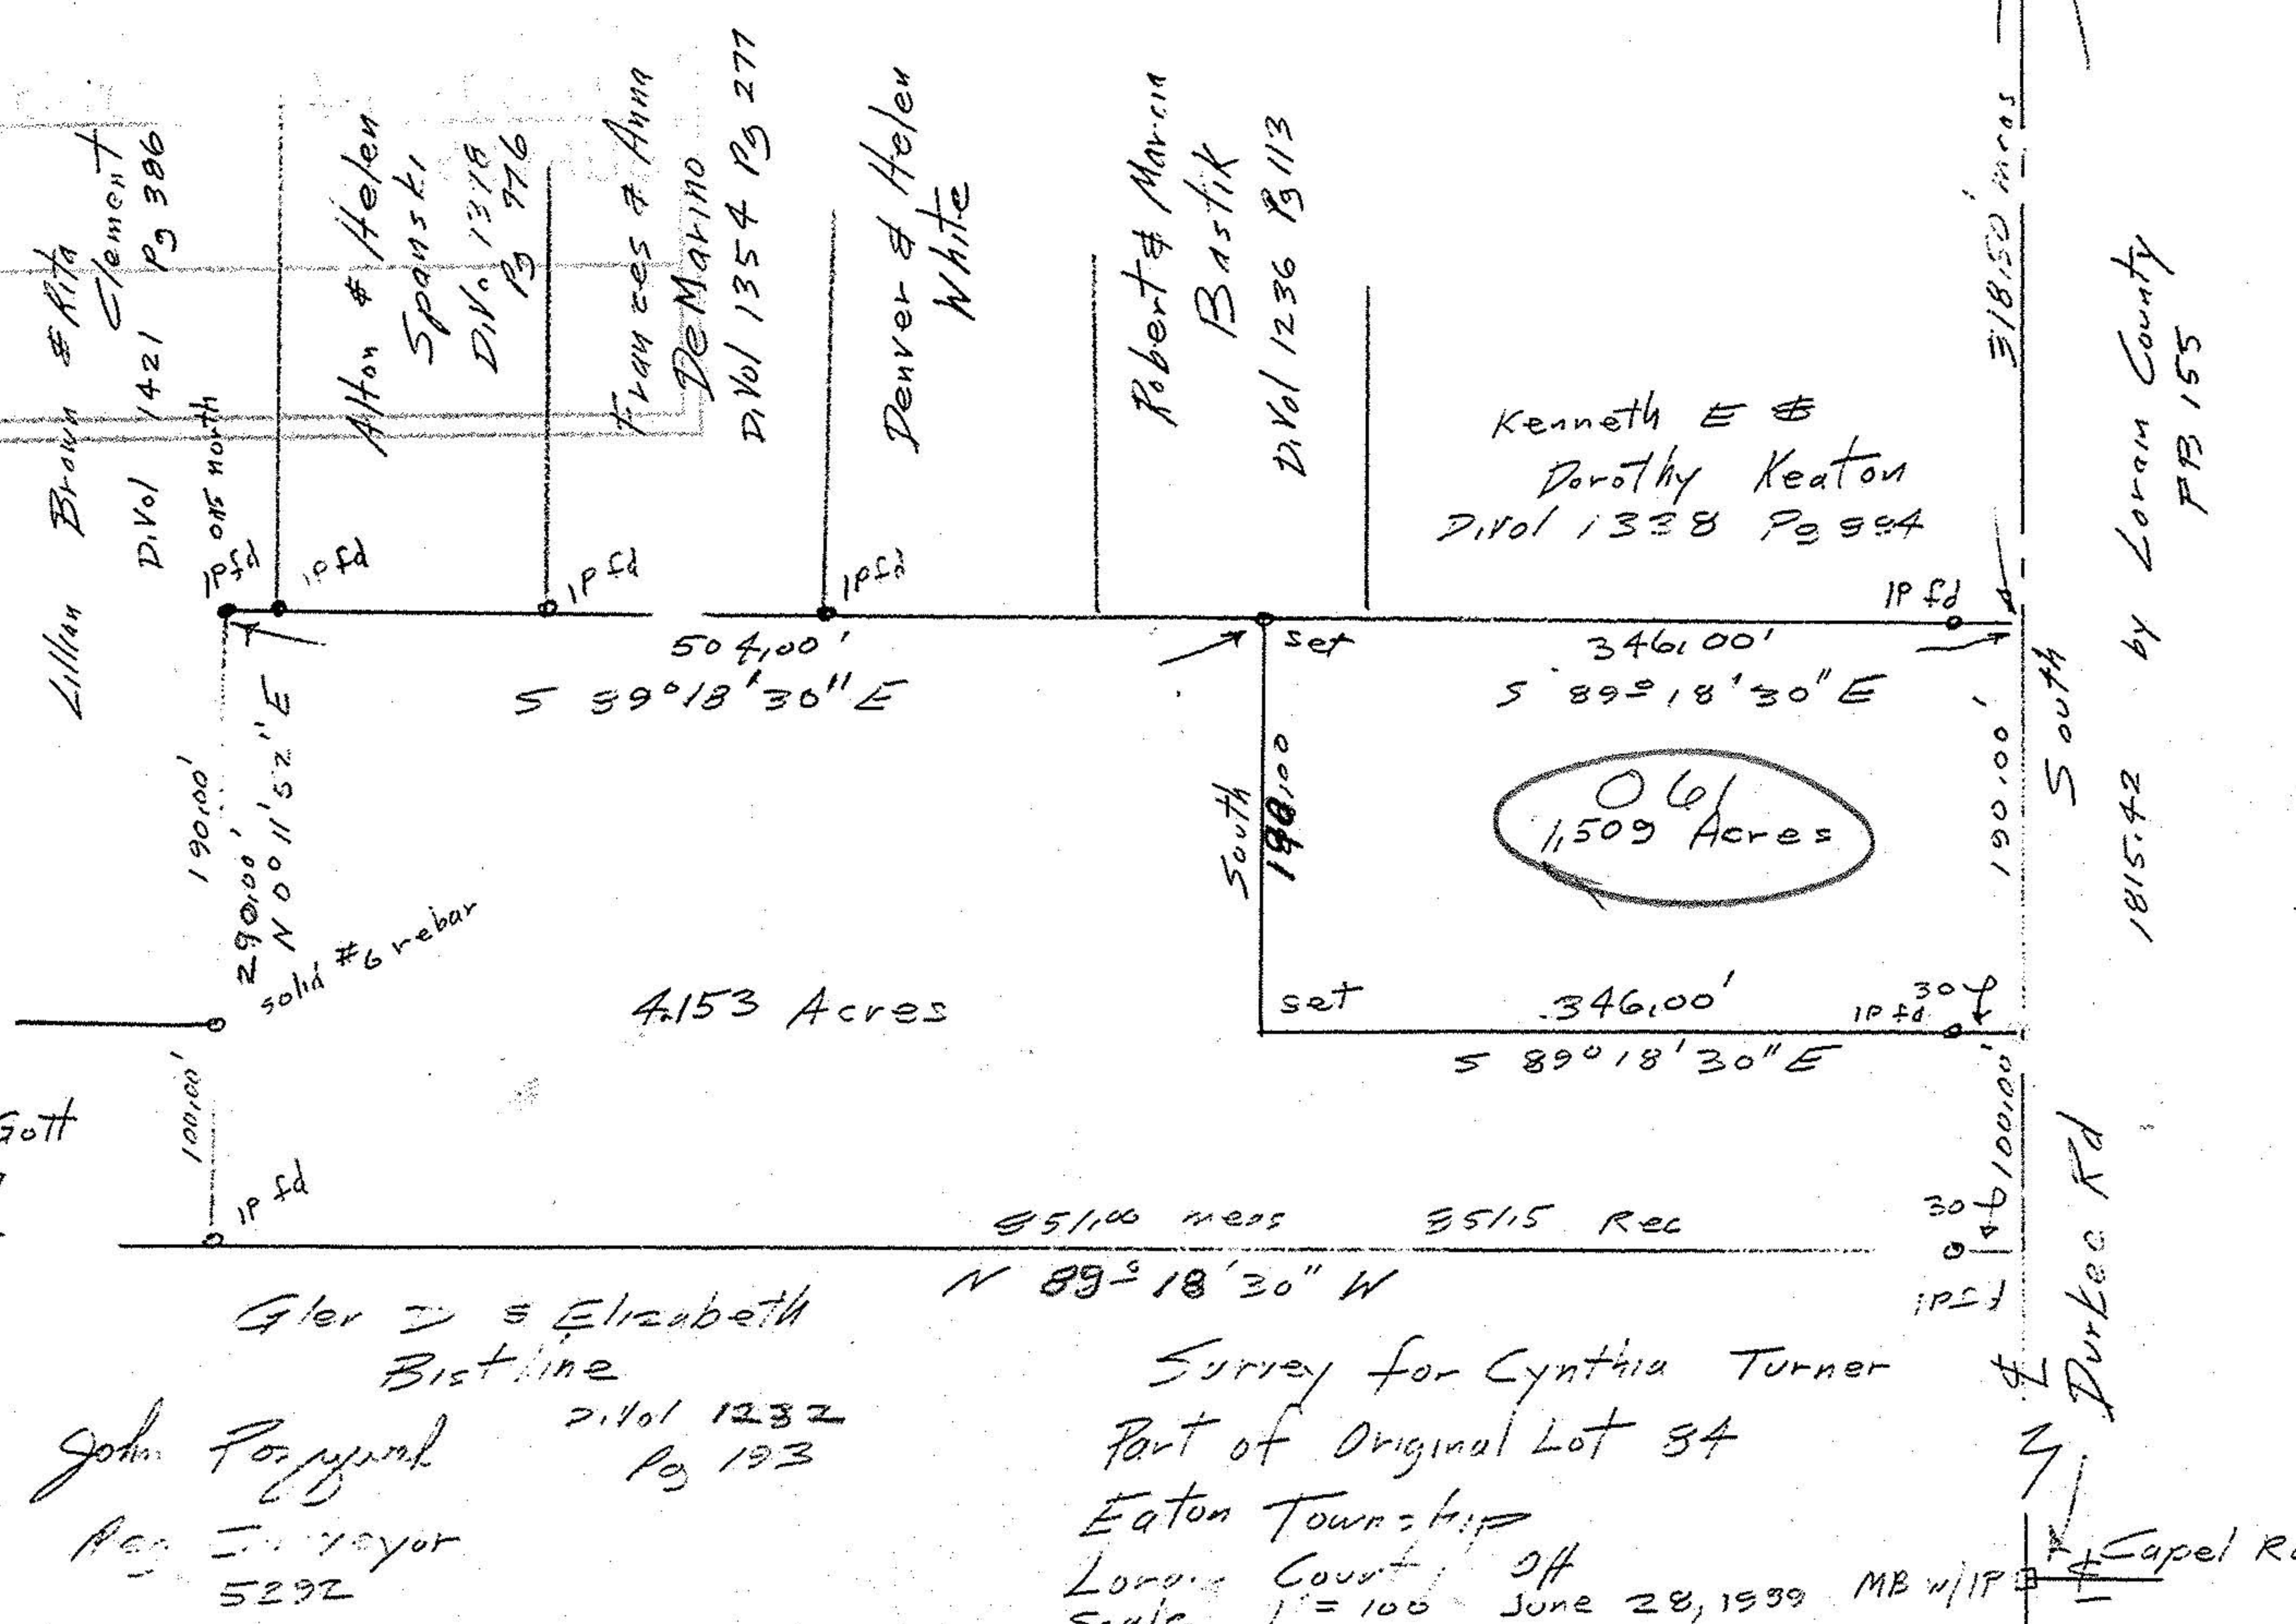 Lillian Brown & Rita
Clement
D.Vol 1421 Pg 386
IP fd
0.15 north
IP fd
Alton & Helen
Spanski
D.V. 1318
Pg 776
IP fd
Frances & Anna
DeMarino
D.Vol 1354 Pg 277
IP fd
Denver & Helen
White
Robert & Marcia
Bastik
D.Vol 1236 Pg 113
Kenneth E &
Dorothy Keaton
D.Vol 1338 Pg
IP fd
318.50' meas
by Lorain County
PB 155
1815.42
504.00'
S 89°18'30" E
set
346.00'
S 89°18'30" E
190.00'
290.00'
N 0°11'52" E
solid #6 rebar
South
190.00
061
1.509 Acres
190.00'
South
4.153 Acres
set
346.00'
IP fd
30
S 89°18'30" E
Gott
100.00'
IP fd
100.00'
30
IP fd
851.00 meas 851.15 Rec
N 89°18'30" W
Durkee Rd
Glen D & Elizabeth
Bistline
D.Vol 1232
Pg 193
John
Reg Surveyor
5292
Survey for Cynthia Turner
Part of Original Lot 84
Eaton Township
Lorain County Off
Scale 1" = 100 June 28, 1989
MB w/IP
Capel Rd